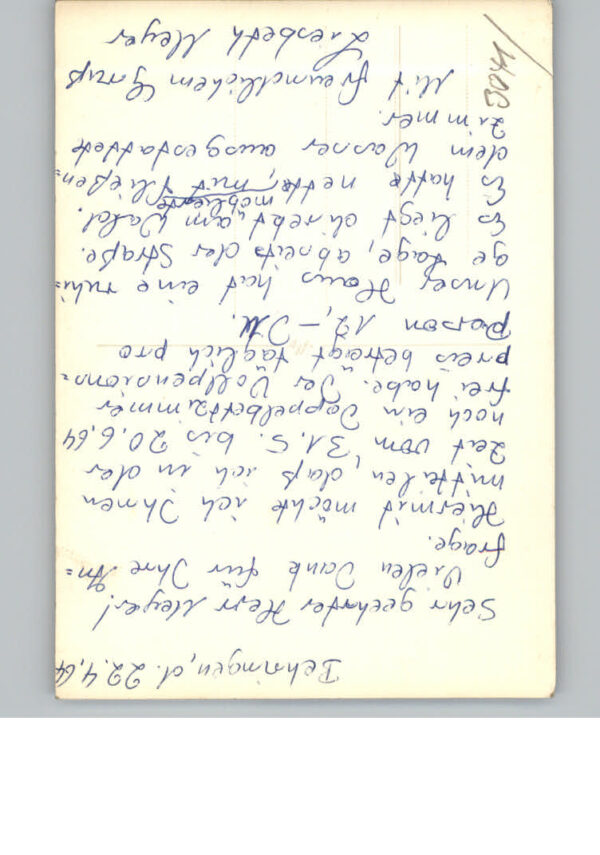 Behringen, d. 22.4.64
Sehr geehrter Herr Meyer!
Vielen Dank für Ihre An=
frage.
Hiermit möchte ich Ihnen
mitteilen, daß ich in der
Zeit vom 31.5. bis 20.6.64
noch ein Doppelbettzimmer
frei habe. Der Vollpensions=
preis beträgt täglich pro
Person 12,- DM.
Unser Haus hat eine ruhi=
ge Lage, abseits der Straße.
Es liegt direkt am Wald.
möblierte
Es hatte nette, mit fließen=
dem Wasser ausgestattete
Zimmer.
Mit freundlichem Gruß
Liesbeth Meyer
3041